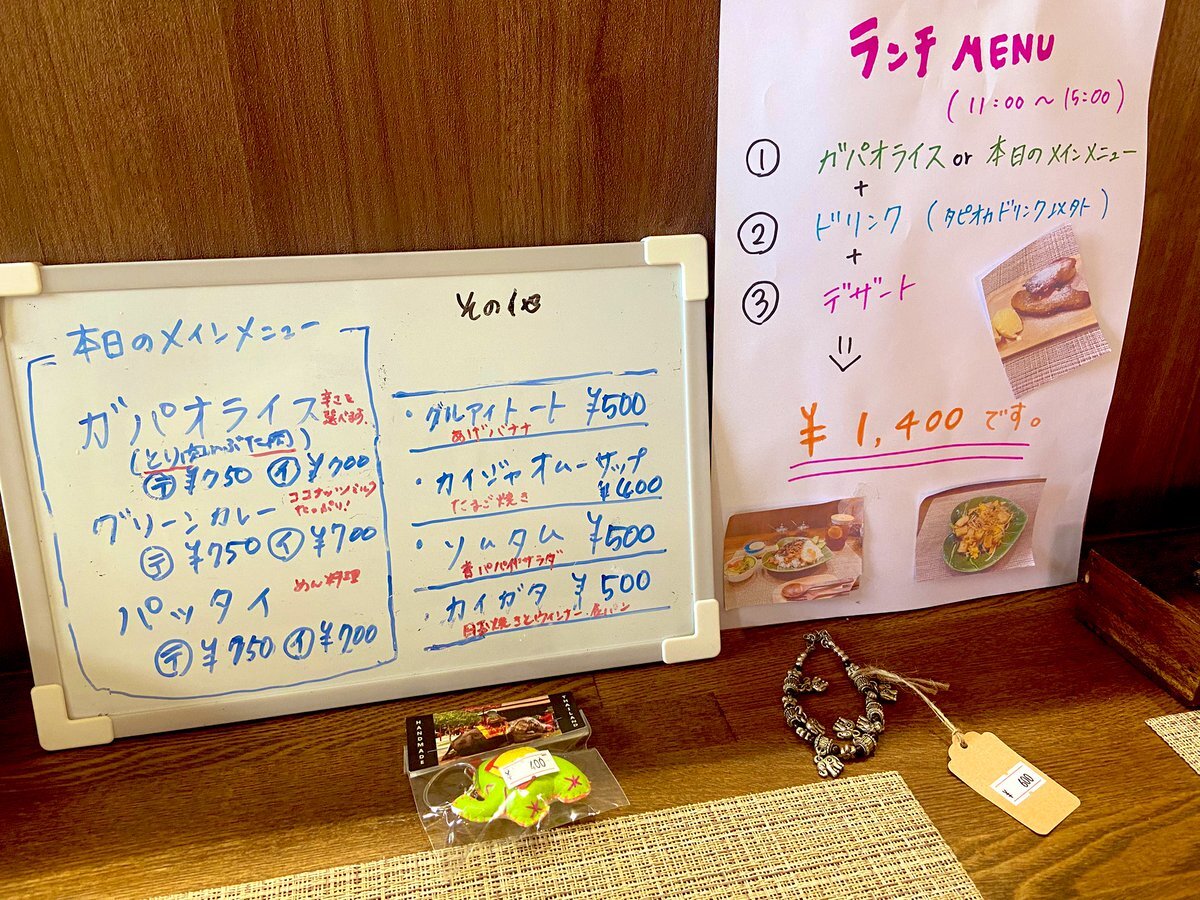 ランチ MENU
(11:00～15:00)
① ガパオライス or 本日のメインメニュー
+
② ドリンク (タピオカドリンク以外)
+
③ デザート
¥1,400です。
本日のメインメニュー
ガパオライス 辛さも選べます。
テ ¥750 イ ¥700
グリーンカレー ココナッツミルクたっぷり!
テ ¥750 イ ¥700
パッタイ めん料理
テ ¥750 イ ¥700
その他
・グルアイトート ¥500
あげバナナ
・カイジャオムーサップ
たまご焼き ¥400
・ソムタム ¥500
青パパイヤサラダ
・カイガタ ¥500
HANDMADE
THAILAND
¥ 600
¥ 600